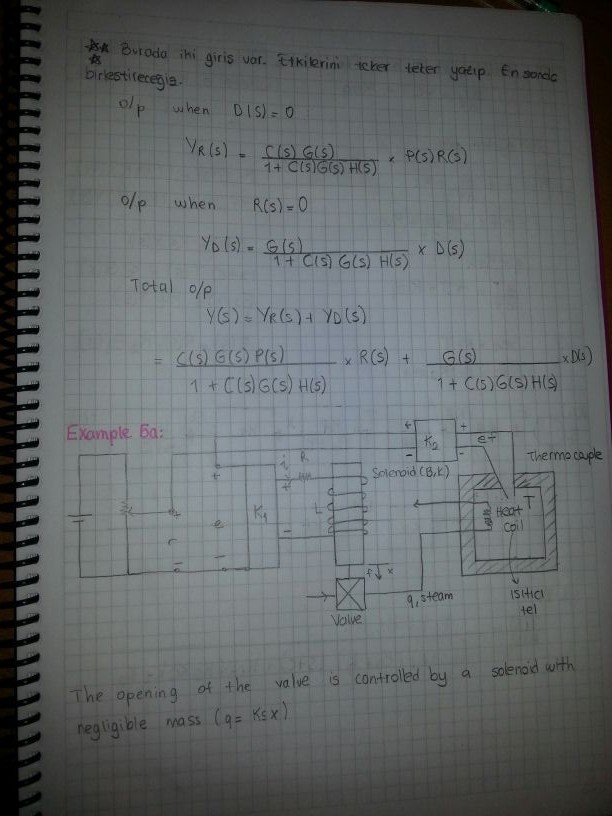 Burada iki giris var. Etkilerini teker teker yazıp En sonda
birlestirecegiz.
o/p when D(s) = 0
YR(s) = C(s) G(s) / 1 + C(s)G(s) H(s) × P(s)R(s)
o/p when R(s) = 0
YD(s) = G(s) / 1 + C(s) G(s) H(s) × D(s)
Total o/p
Y(s) = YR(s) + YD(s)
= C(s) G(s) P(s) / 1 + C(s)G(s) H(s) × R(s) + G(s) / 1 + C(s)G(s)H(s) × D(s)
Example 5a:
+ K2 +
- - et
i R
Thermocouple
Solenoid (B,K)
+ +
K1 L
Heat T
coil
+ e
r
- - -
f x
q, steam
ısıtıcı
tel
Valve
The opening of the valve is controlled by a solenoid with
negligible mass (q = K5 x)